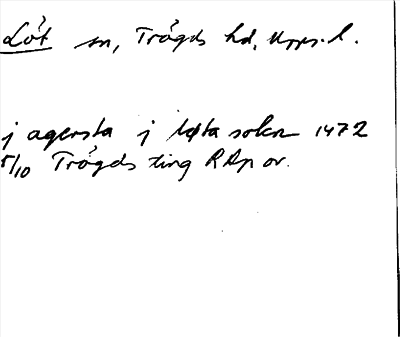 Löt sn, Trögds hd, Upps. l.
j agersta j løta sokn 1472
5/10 Trögds ting RAp or.